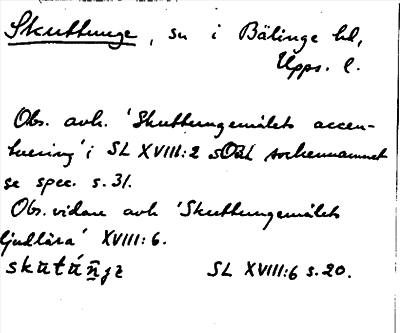 Skuttunge, sn i Bälinge hd,
Upps. l.
Obs. avh. 'Skuttungemålets accen-
tuering' i SL XVIII:2 sockennamnet
se spec. s. 31.
Obs. vidare avh 'Skuttungemålets
ljudlära' XVIII:6.
SL XVIII:6 s. 20.